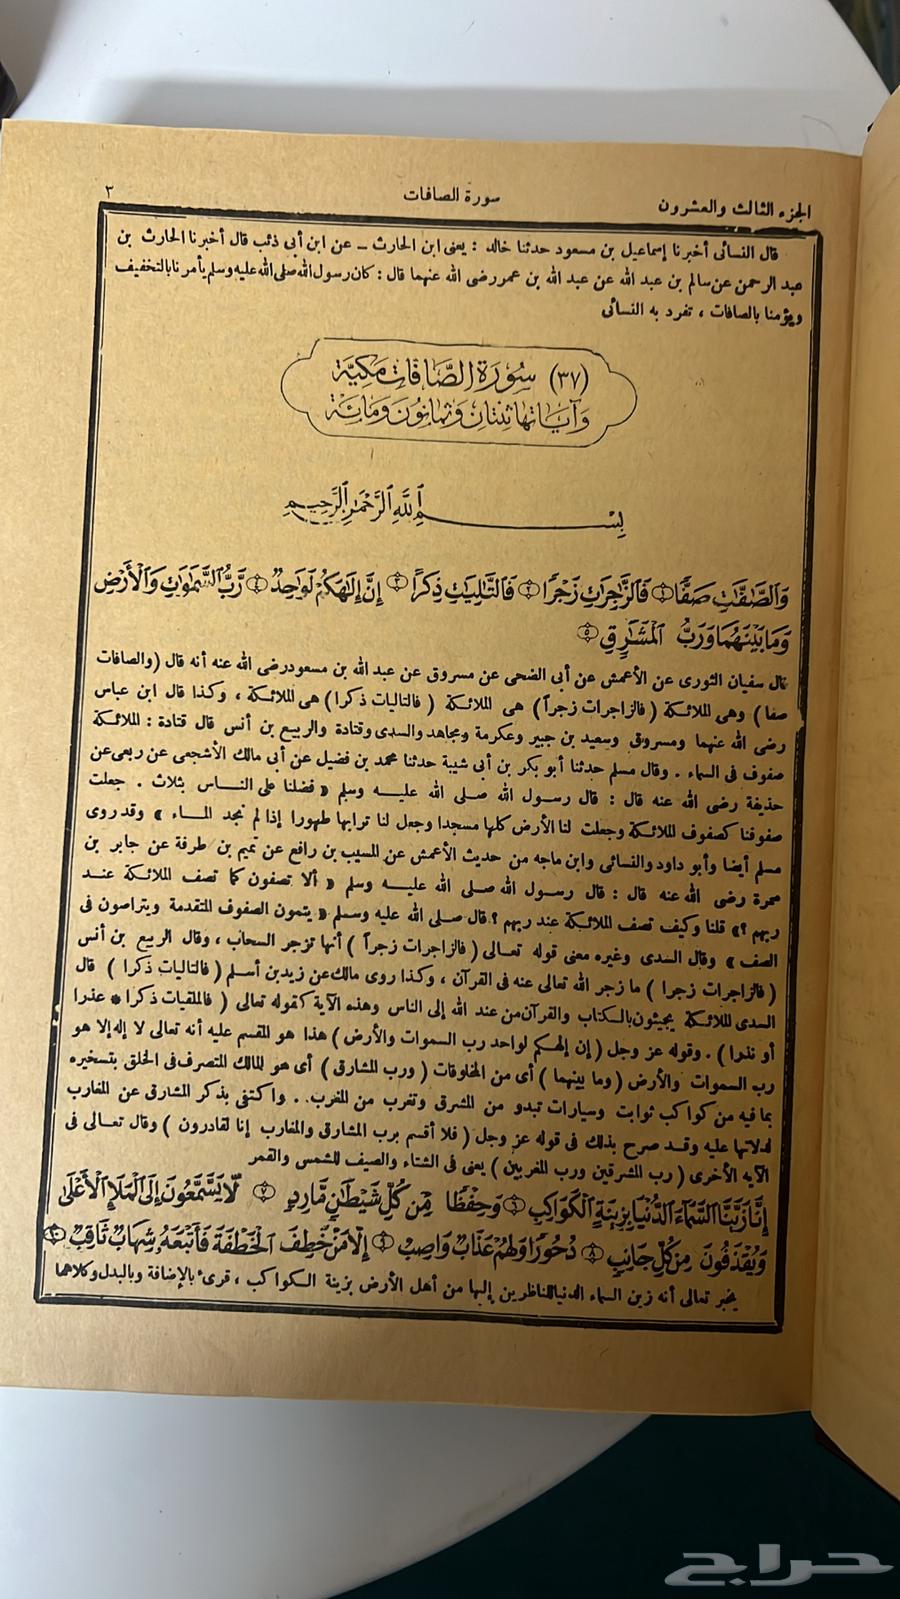 الجزء الثالث والعشرون
سورة الصافات
٣
قال النسائى أخبرنا إسماعيل بن مسعود حدثنا خالد : يعنى ابن الحارث ــ عن ابن أبى ذئب قال أخبرنا الحارث بن
عبد الرحمن عن سالم بن عبد الله عن عبد الله بن عمر رضى الله عنهما قال : كان رسول الله صلى الله عليه وسلم يأمرنا بالتخفيف
ويؤمنا بالصافات ، تفرد به النسائى
(٣٧) سُورَة الصَّافَاتِ مَكِيَّة
وَآيَاتهَا ثِنتَانِ وَثمَانُونَ وَمَائة
بِسْمِ ٱللَّهِ ٱلرَّحْمَٰنِ ٱلرَّحِيمِ
وَٱلصَّٰٓفَّٰتِ صَفًّا ١ فَٱلزَّٰجِرَٰتِ زَجْرًا ٢ فَٱلتَّٰلِيَٰتِ ذِكْرًا ٣ إِنَّ إِلَٰهَكُمْ لَوَٰحِدٌ ٤ رَّبُّ ٱلسَّمَٰوَٰتِ وَٱلْأَرْضِ
وَمَا بَيْنَهُمَا وَرَبُّ ٱلْمَشَٰرِقِ ٥
قال سفيان الثورى عن الأعمش عن أبى الضحى عن مسروق عن عبد الله بن مسعود رضى الله عنه أنه قال (والصافات
صفا) وهى الملائكة ( فالزاجرات زجراً) هى الملائكة ( فالتاليات ذكرا) هى الملائكة ، وكذا قال ابن عباس
رضى الله عنهما ومسروق وسعيد بن جبير وعكرمة ومجاهد والسدى وقتادة والربيع بن أنس قال قتادة : الملائكة
صفوف فى السماء . وقال مسلم حدثنا أبو بكر بن أبى شيبة حدثنا محمد بن فضيل عن أبى مالك الأشجعى عن ربعى عن
حذيفة رضى الله عنه قال : قال رسول الله صلى الله عليه وسلم « فضلنا على الناس بثلاث . جعلت
صفوفنا كصفوف الملائكة وجعلت لنا الأرض كلها مسجدا وجعل لنا ترابها طهورا إذا لم نجد الماء » وقد روى
مسلم أيضا وأبو داود والنسائى وابن ماجه من حديث الأعمش عن المسيب بن رافع عن تميم بن طرفة عن جابر بن
سمرة رضى الله عنه قال : قال رسول الله صلى الله عليه وسلم « ألا تصفون كما تصف الملائكة عند
ربهم ؟» قلنا وكيف تصف الملائكة عند ربهم ؟ قال صلى الله عليه وسلم « يتمون الصفوف المتقدمة ويتراصون فى
الصف » وقال السدى وغيره معنى قوله تعالى ( فالزاجرات زجراً ) أنها تزجر السحاب ، وقال الربيع بن أنس
( فالزاجرات زجرا ) ما زجر الله تعالى عنه فى القرآن ، وكذا روى مالك عن زيد بن أسلم ( فالتاليات ذكرا ) قال
السدى الملائكة يجيئون بالكتاب والقرآن من عند الله إلى الناس وهذه الآية كقوله تعالى ( فالملقيات ذكرا * عذرا
أو نذرا ) . وقوله عز وجل ( إن إلهكم لواحد رب السموات والأرض ) هذا هو المقسم عليه أنه تعالى لا إله إلا هو
رب السموات والأرض ( وما بينهما ) أى من المخلوقات ( ورب المشارق ) أى هو المالك المتصرف فى الخلق بتسخيره
بما فيه من كواكب ثوابت وسيارات تبدو من المشرق وتغرب من المغرب . واكتفى بذكر المشارق عن المغارب
لدلالتها عليه وقد صرح بذلك فى قوله عز وجل ( فلا أقسم برب المشارق والمغارب إنا لقادرون ) وقال تعالى فى
الآية الأخرى ( رب المشرقين ورب المغربين ) يعنى فى الشتاء والصيف للشمس والقمر
إِنَّا زَيَّنَّا ٱلسَّمَآءَ ٱلدُّنْيَا بِزِينَةٍ ٱلْكَوَاكِبِ ٦ وَحِفْظًا مِّن كُلِّ شَيْطَٰنٍ مَّارِدٍ ٧ لَّا يَسَّمَّعُونَ إِلَى ٱلْمَلَإِ ٱلْأَعْلَىٰ
وَيُقْذَفُونَ مِن كُلِّ جَانِبٍ ٨ دُحُورًا وَلَهُمْ عَذَابٌ وَاصِبٌ ٩ إِلَّا مَنْ خَطِفَ ٱلْخَطْفَةَ فَأَتْبَعَهُۥ شِهَابٌ ثَاقِبٌ ١٠
يخبر تعالى أنه زين السماء الدنيا للناظرين إليها من أهل الأرض بزينة الكواكب ، قرىء بالإضافة وبالبدل وكلاهما
حراج